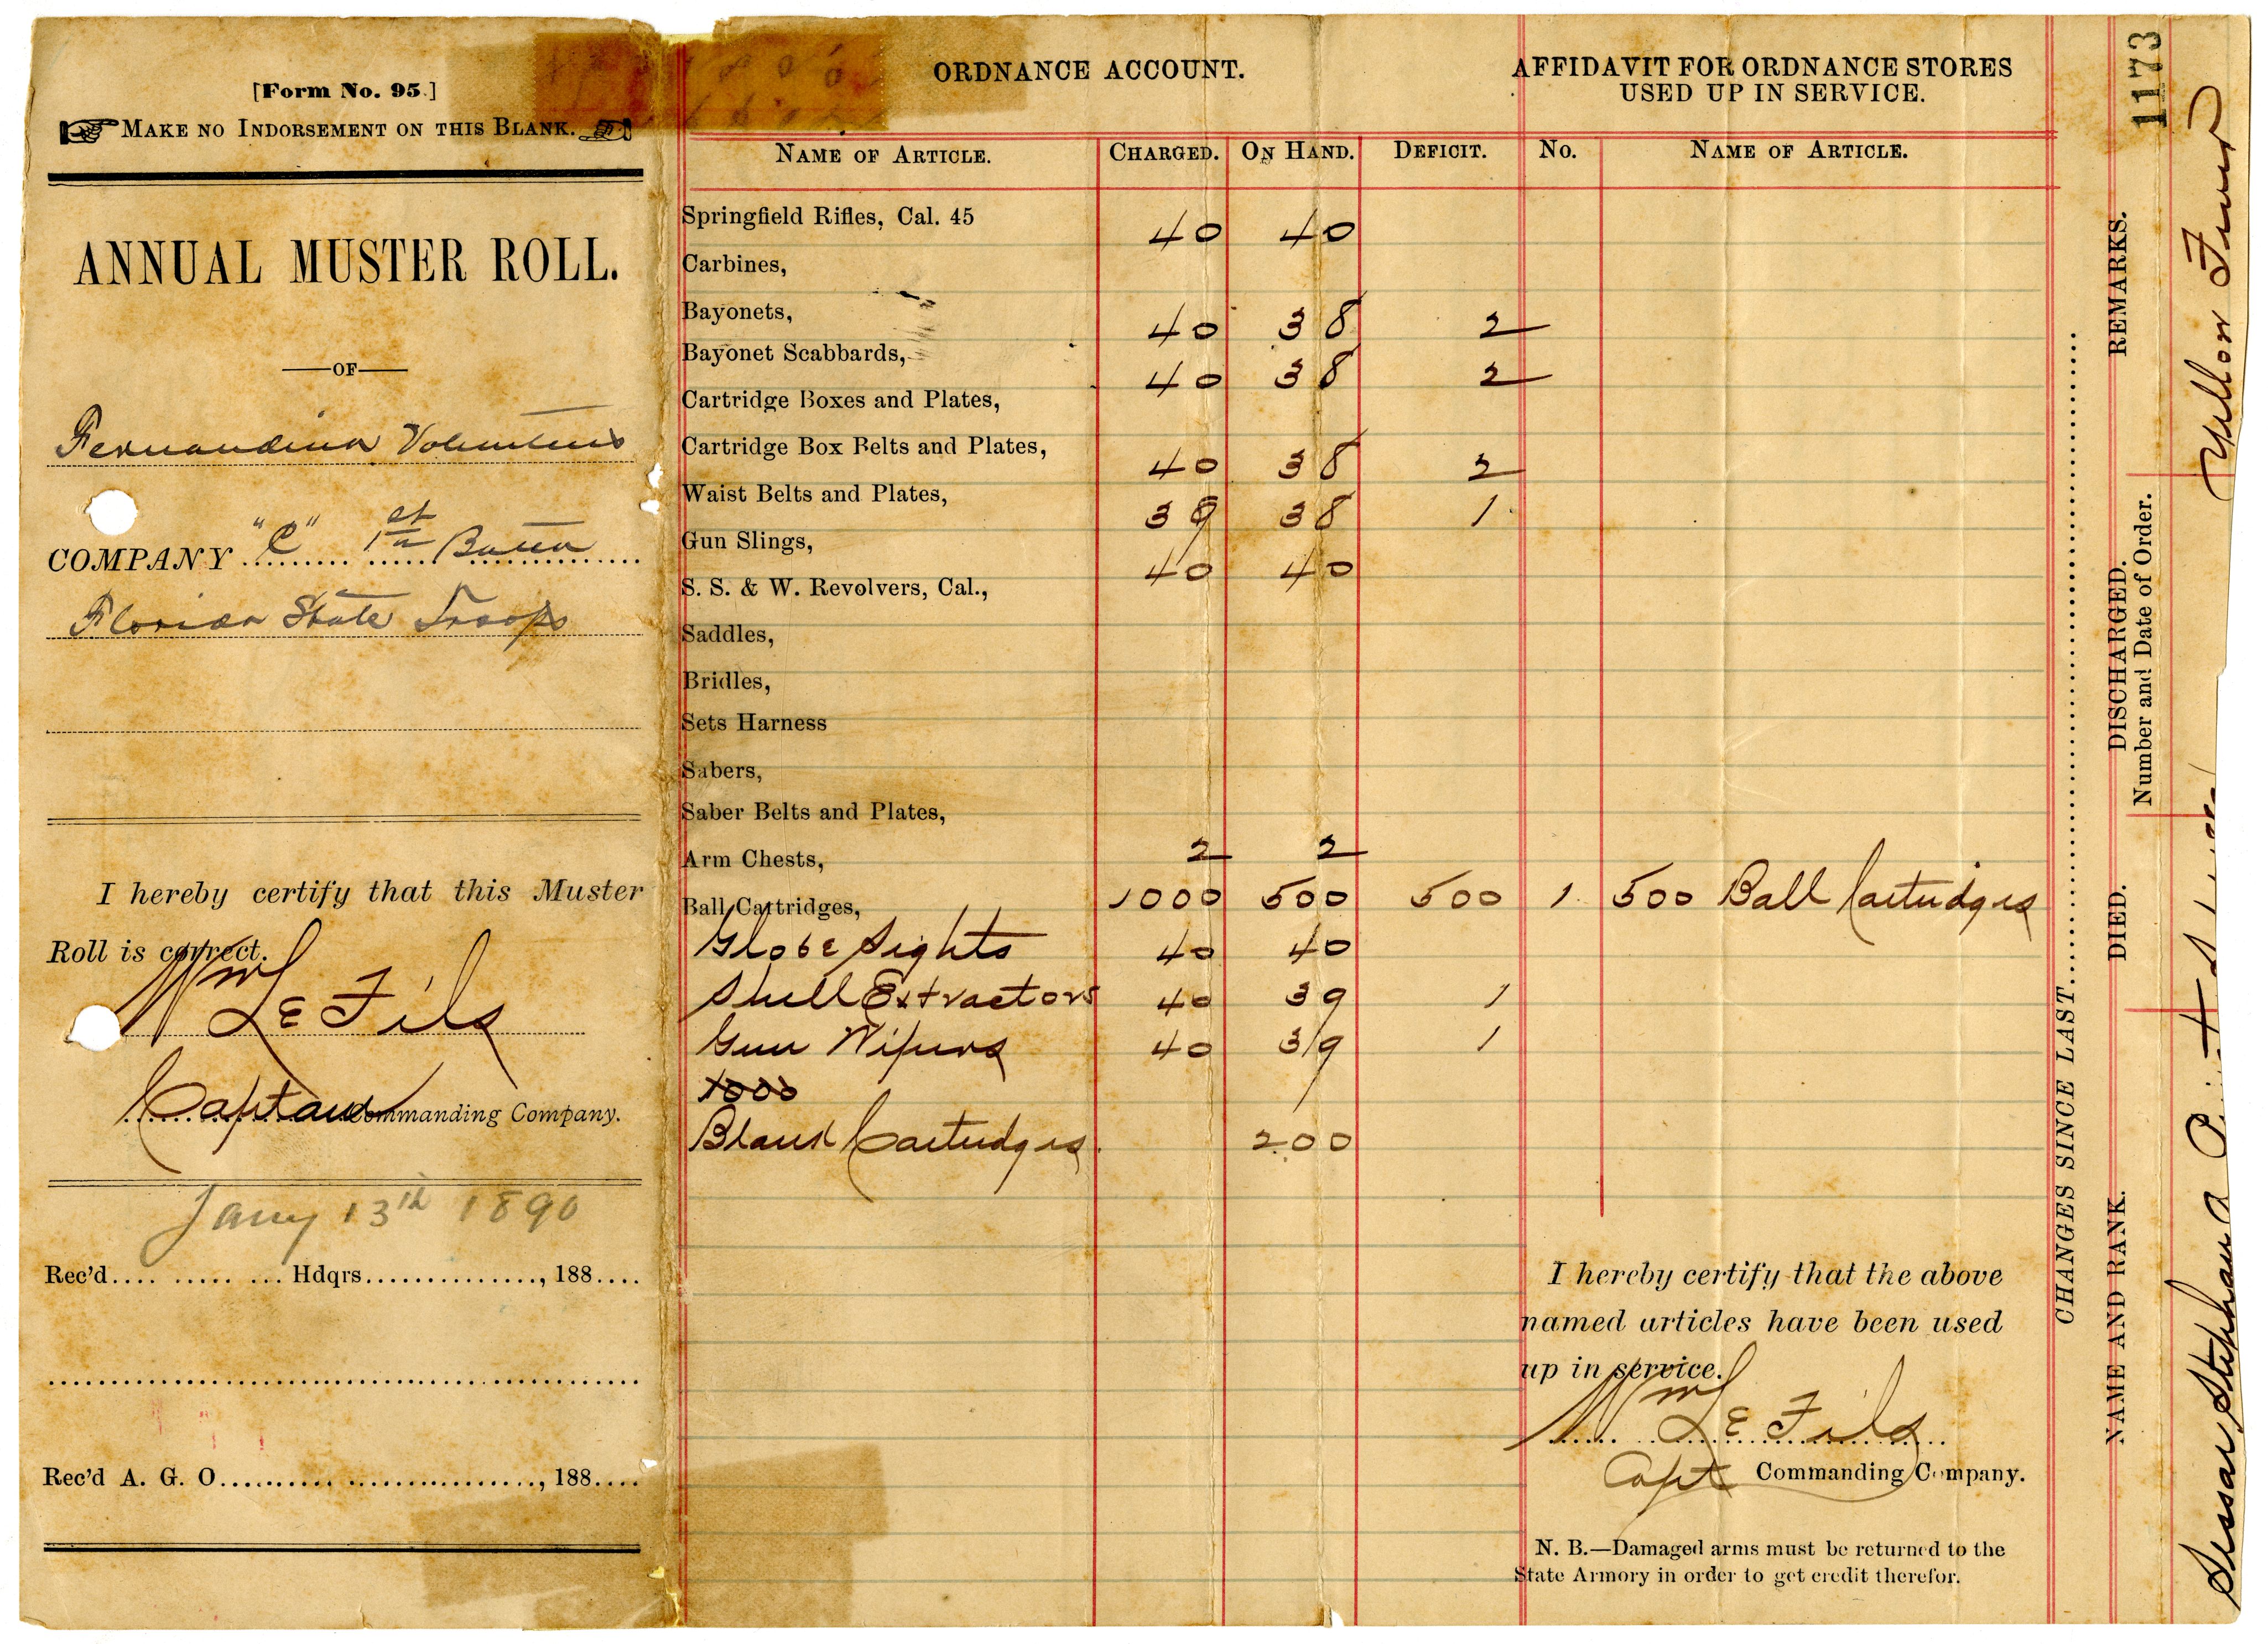 [Form No. 95.]
MAKE NO INDORSEMENT ON THIS BLANK.
ANNUAL MUSTER ROLL.
—OF—
Fernandina Volunteers
COMPANY "C" 1st Battn
Florida State Troops
I hereby certify that this Muster
Roll is correct.
Wm LeFils
Captain Commanding Company.
Jany 13th 1890
Rec'd.... ..... ... Hdqrs..............., 188....
Rec'd A. G. O.......... ................., 188....
ORDNANCE ACCOUNT.
NAME OF ARTICLE. CHARGED. ON HAND. DEFICIT.
Springfield Rifles, Cal. 45 40 40
Carbines,
Bayonets, 40 38 2
Bayonet Scabbards, 40 38 2
Cartridge Boxes and Plates,
Cartridge Box Belts and Plates, 40 38 2
Waist Belts and Plates, 39 38 1
Gun Slings, 40 40
S. S. & W. Revolvers, Cal.,
Saddles,
Bridles,
Sets Harness
Sabers,
Saber Belts and Plates,
Arm Chests, 2 2
Ball Cartridges, 1000 500 500
Globe Sights 40 40
Shell Extractors 40 39 1
Gun Wipers 40 39 1
1000
Blank Cartridges 200
AFFIDAVIT FOR ORDNANCE STORES
USED UP IN SERVICE.
No. NAME OF ARTICLE.
1. 500 Ball Cartridges
I hereby certify that the above
named articles have been used
up in service.
Wm LeFils
Capt Commanding Company.
N. B.—Damaged arms must be returned to the
State Armory in order to get credit therefor.
CHANGES SINCE LAST
NAME AND RANK. DIED. DISCHARGED. REMARKS.
Number and Date of Order.
1173
Stephan A Yellow Fever